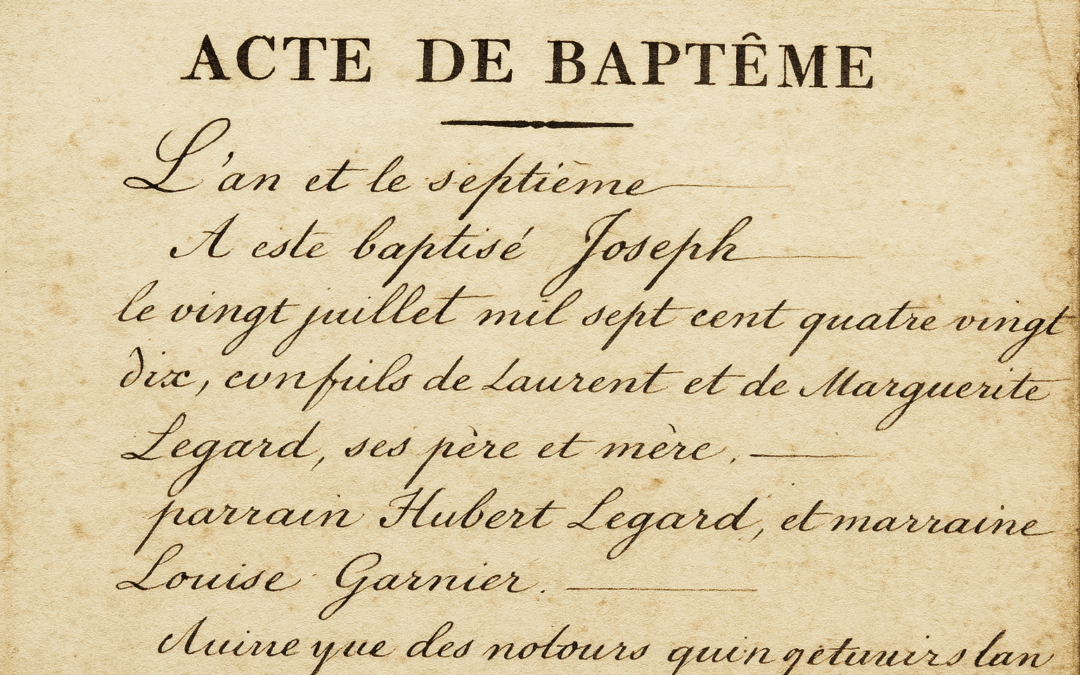 ACTE DE BAPTÊME
L'an et le septième
A este baptisé Joseph
le vingt juillet mil sept cent quatre vingt
dix, de Laurent et de Marguerite
Legard, ses père et mère.
parrain Hubert Legard, et marraine
Louise Garnier.
des lan